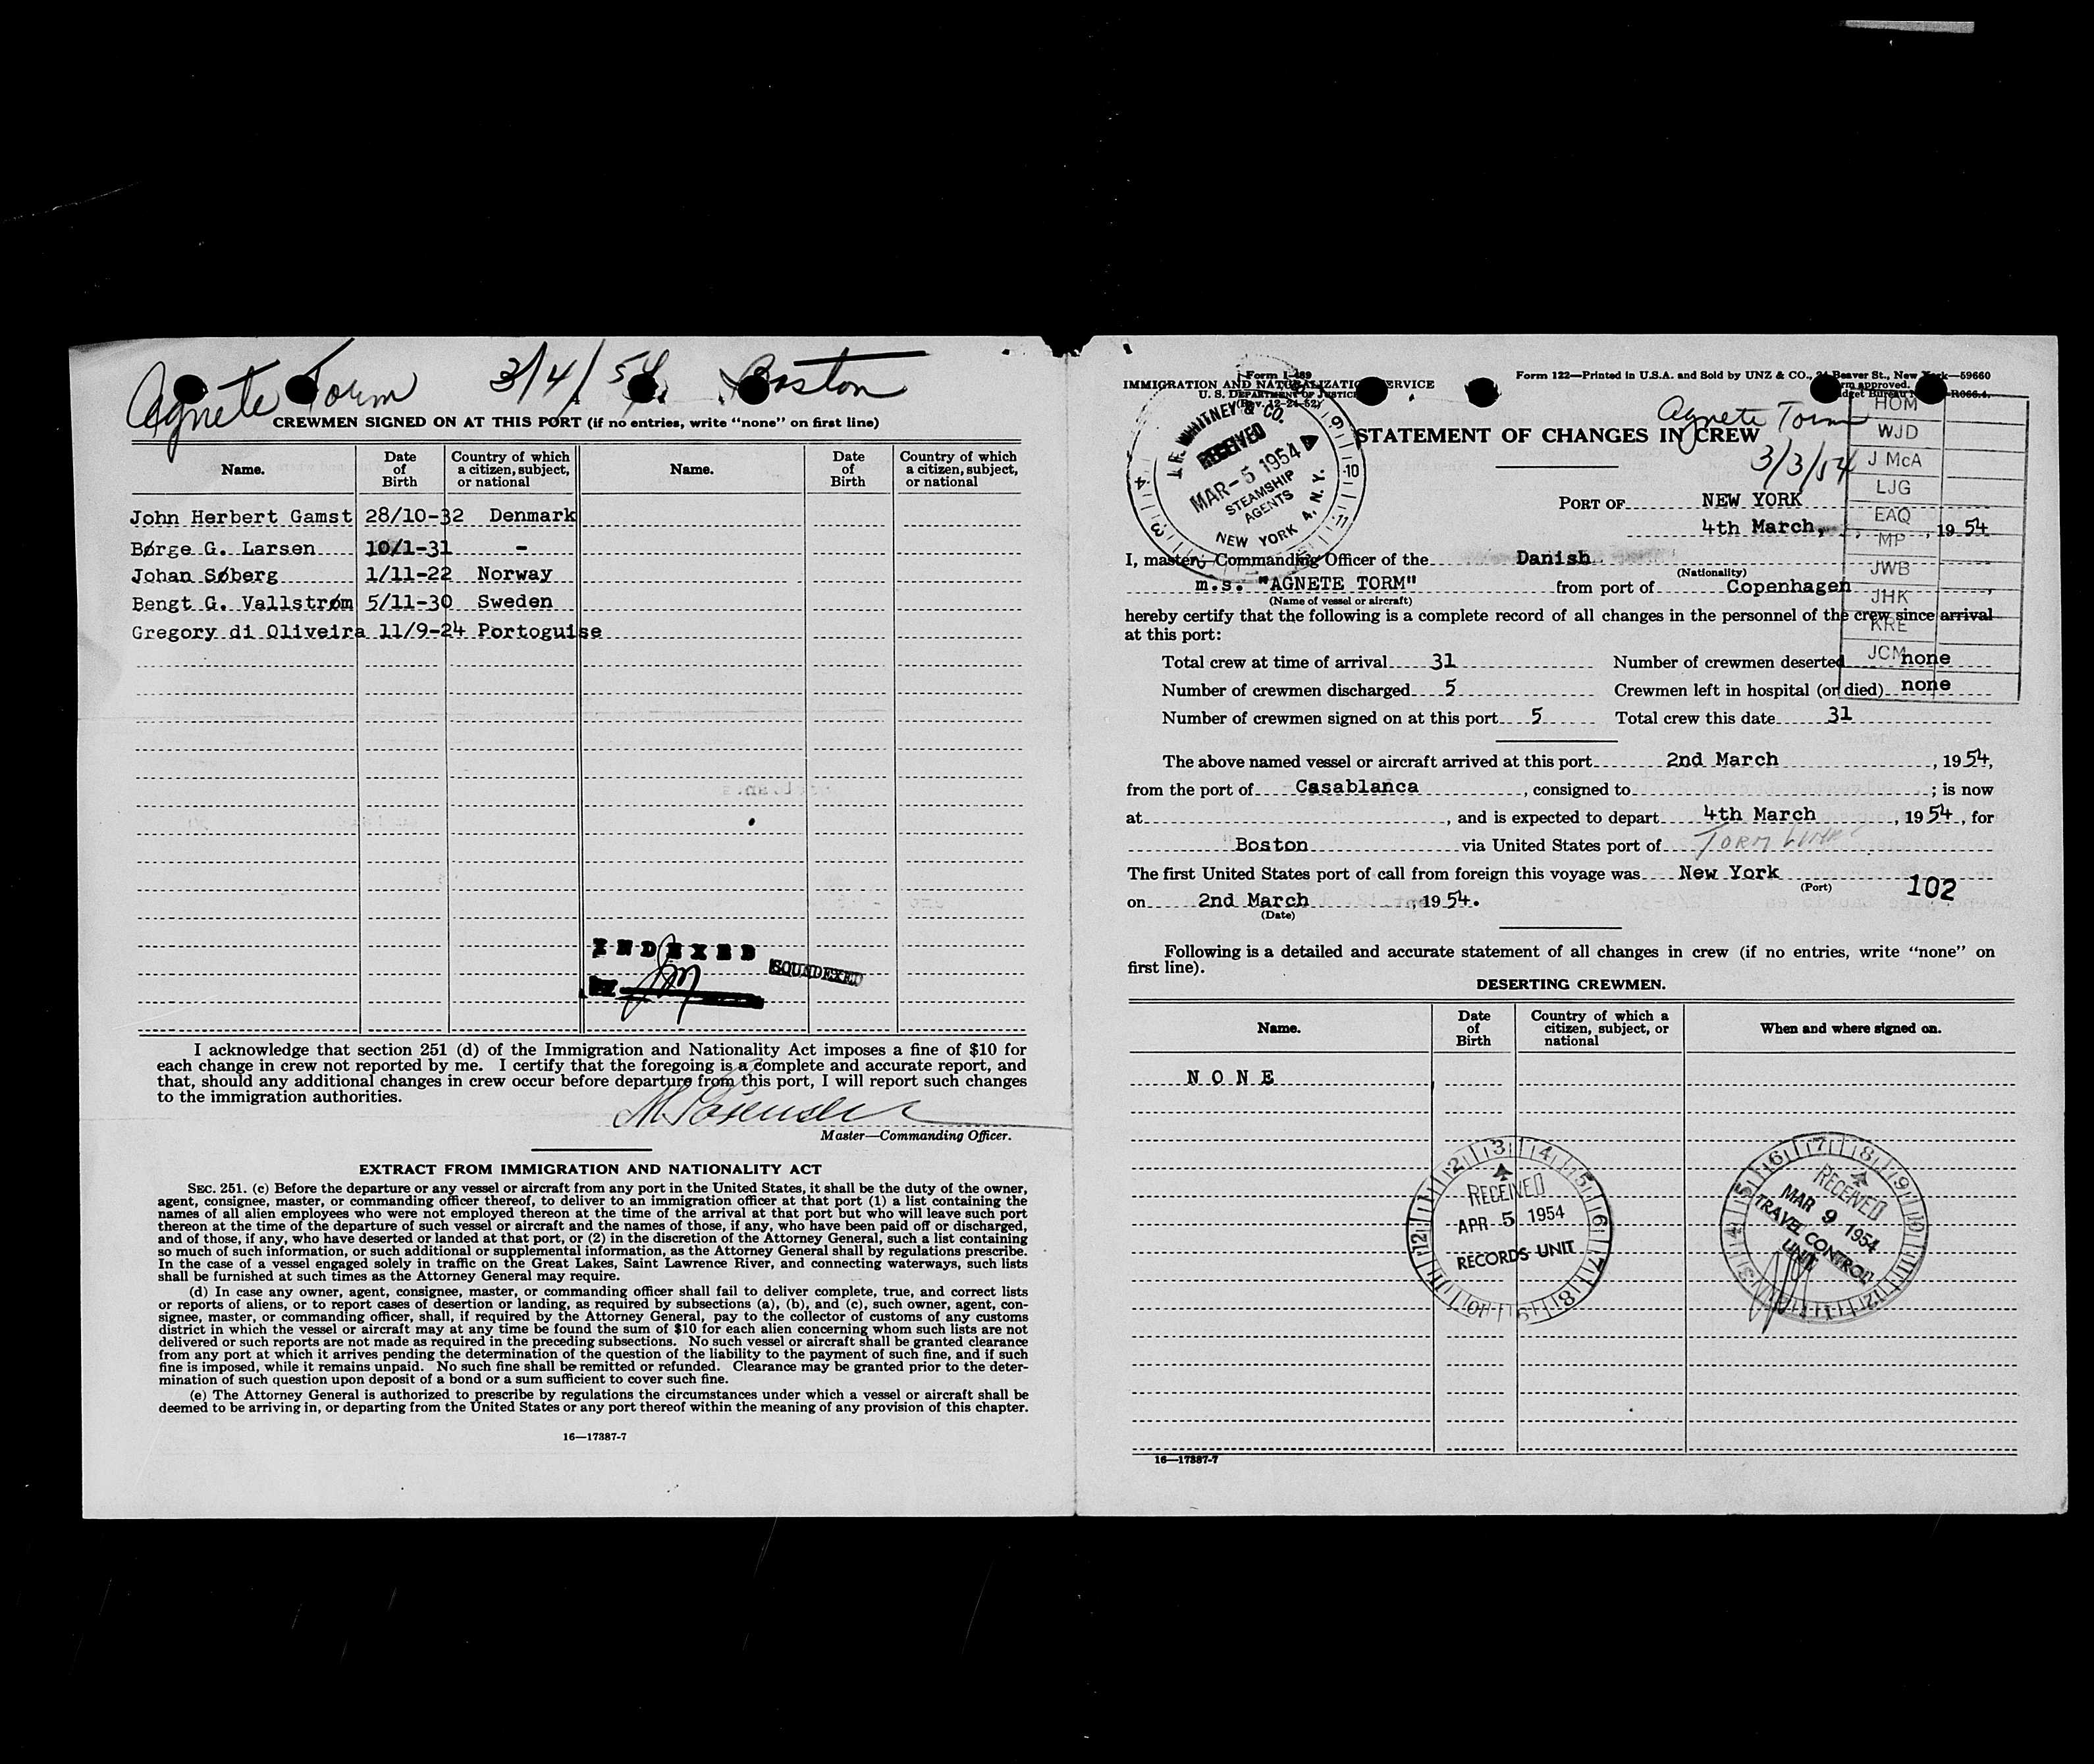 Agnete Torm 3/4/54. Boston
CREWMEN SIGNED ON AT THIS PORT (if no entries, write "none" on first line)
Name. Date of Birth Country of which a citizen, subject, or national Name. Date of Birth Country of which a citizen, subject, or national
John Herbert Gamst 28/10-32 Denmark
Børge G. Larsen 10/1-31 -
Johan Søberg 1/11-22 Norway
Bengt G. Vallstrøm 5/11-30 Sweden
Gregory di Oliveira 11/9-24 Portoguise
INDEXED
SOUNDEXED
I acknowledge that section 251 (d) of the Immigration and Nationality Act imposes a fine of $10 for
each change in crew not reported by me. I certify that the foregoing is a complete and accurate report, and
that, should any additional changes in crew occur before departure from this port, I will report such changes
to the immigration authorities.
Master—Commanding Officer.
EXTRACT FROM IMMIGRATION AND NATIONALITY ACT
SEC. 251. (c) Before the departure or any vessel or aircraft from any port in the United States, it shall be the duty of the owner,
agent, consignee, master, or commanding officer thereof, to deliver to an immigration officer at that port (1) a list containing the
names of all alien employees who were not employed thereon at the time of the arrival at that port but who will leave such port
thereon at the time of the departure of such vessel or aircraft and the names of those, if any, who have been paid off or discharged,
and of those, if any, who have deserted or landed at that port, or (2) in the discretion of the Attorney General, such a list containing
so much of such information, or such additional or supplemental information, as the Attorney General shall by regulations prescribe.
In the case of a vessel engaged solely in traffic on the Great Lakes, Saint Lawrence River, and connecting waterways, such lists
shall be furnished at such times as the Attorney General may require.
(d) In case any owner, agent, consignee, master, or commanding officer shall fail to deliver complete, true, and correct lists
or reports of aliens, or to report cases of desertion or landing, as required by subsections (a), (b), and (c), such owner, agent, con-
signee, master, or commanding officer, shall, if required by the Attorney General, pay to the collector of customs of any customs
district in which the vessel or aircraft may at any time be found the sum of $10 for each alien concerning whom such lists are not
delivered or such reports are not made as required in the preceding subsections. No such vessel or aircraft shall be granted clearance
from any port at which it arrives pending the determination of the question of the liability to the payment of such fine, and if such
fine is imposed, while it remains unpaid. No such fine shall be remitted or refunded. Clearance may be granted prior to the deter-
mination of such question upon deposit of a bond or a sum sufficient to cover such fine.
(e) The Attorney General is authorized to prescribe by regulations the circumstances under which a vessel or aircraft shall be
deemed to be arriving in, or departing from the United States or any port thereof within the meaning of any provision of this chapter.
16—17387-7
Form I-489
IMMIGRATION AND NATURALIZATION SERVICE
U. S. DEPARTMENT OF JUSTICE
(Rev. 12-24-52)
Form 122—Printed in U.S.A. and Sold by UNZ & CO., 24 Beaver St., New York—59660
J. F. WHITNEY & CO.
RECEIVED
MAR-5 1954
STEAMSHIP
AGENTS
NEW YORK 4, N.Y.
Agnete Torm
STATEMENT OF CHANGES IN CREW
3/3/54
HOM
WJD
J McA
LJG
EAQ
MP
JWB
JHK
KRE
JCM
PORT OF NEW YORK
4th March, , 1954
I, master, Commanding Officer of the Danish
(Nationality)
m.s. "AGNETE TORM" from port of Copenhagen,
(Name of vessel or aircraft)
hereby certify that the following is a complete record of all changes in the personnel of the crew since arrival
at this port:
Total crew at time of arrival 31 Number of crewmen deserted none
Number of crewmen discharged 5 Crewmen left in hospital (or died) none
Number of crewmen signed on at this port 5 Total crew this date 31
The above named vessel or aircraft arrived at this port 2nd March, 1954,
from the port of Casablanca, consigned to ; is now
at , and is expected to depart 4th March, 1954, for
Boston via United States port of TORM LINE
The first United States port of call from foreign this voyage was New York
(Port)
102
on 2nd March, 1954.
(Date)
Following is a detailed and accurate statement of all changes in crew (if no entries, write "none" on
first line).
DESERTING CREWMEN.
Name. Date of Birth Country of which a citizen, subject, or national When and where signed on.
NONE
RECEIVED
APR 5 1954
RECORDS UNIT
RECEIVED
MAR 9 1954
TRAVEL CONTROL
UNIT
16—17387-7